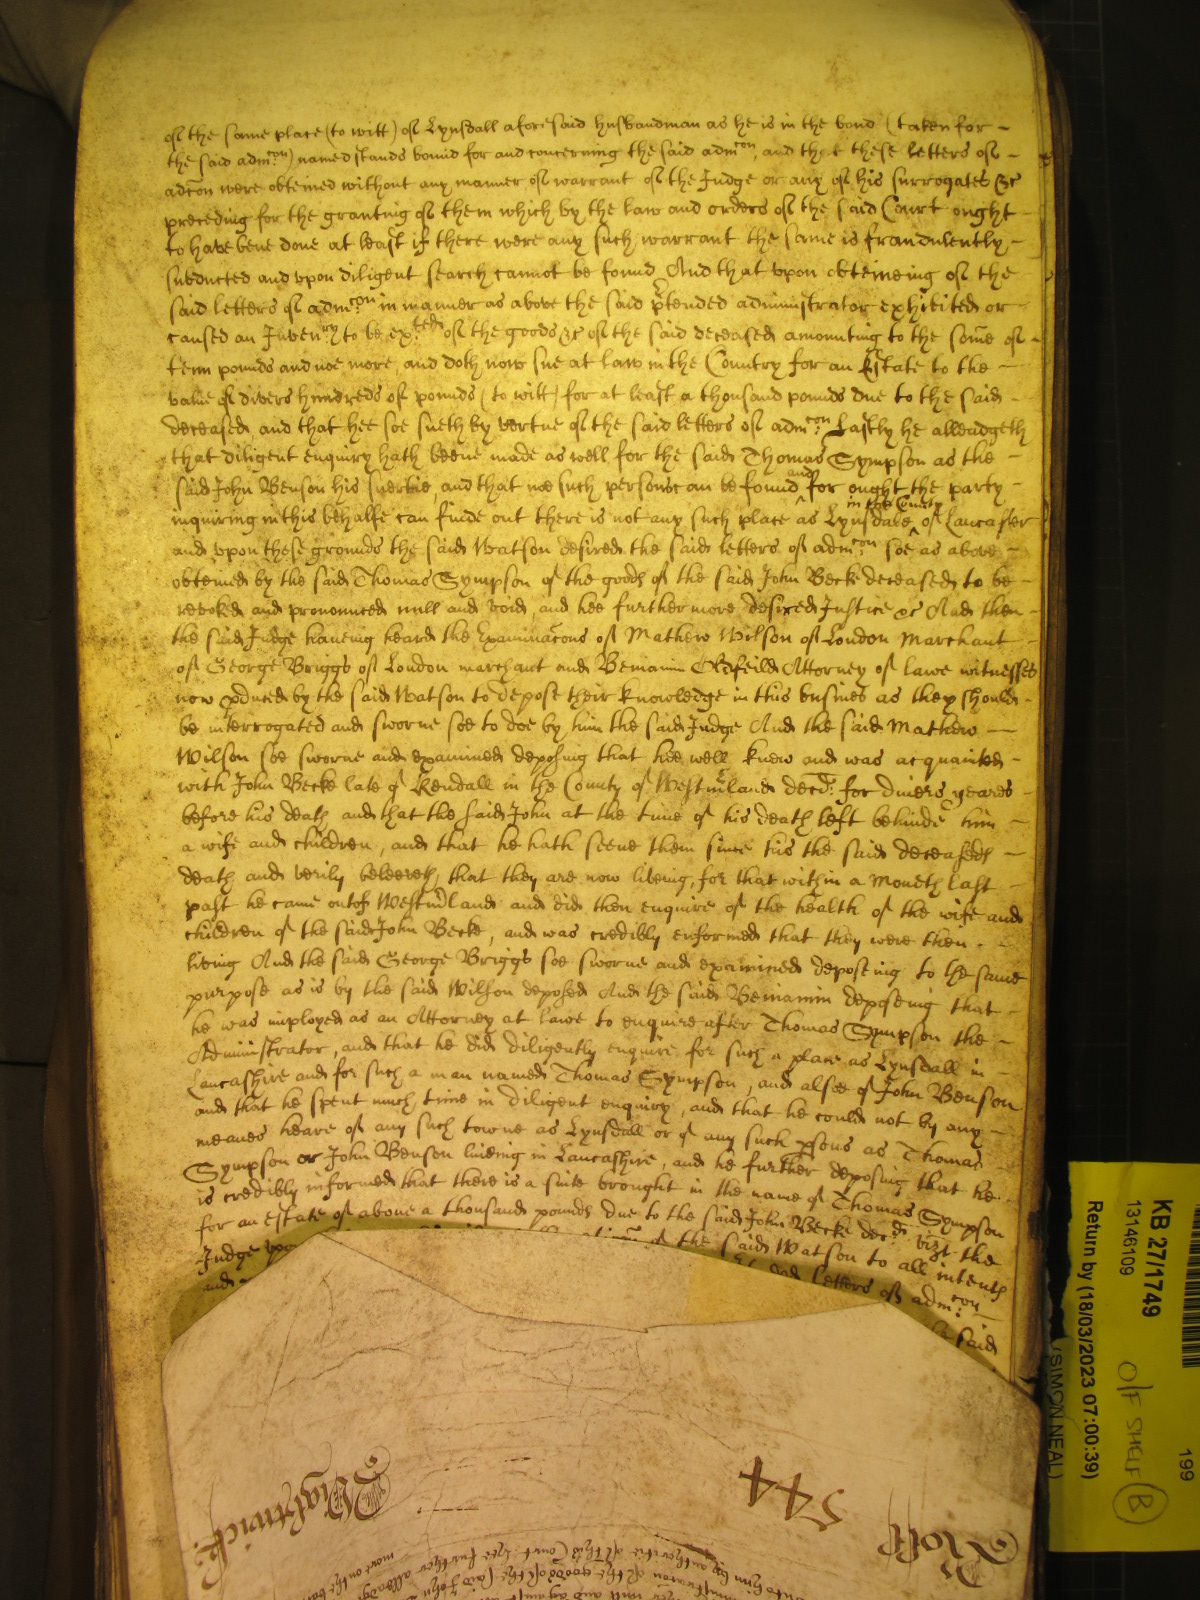 of the same place (to witt) of Lynsdall aforesaid husbandman as he is in the bond (taken for
the said admcon) named stands bound for and concerning the said admcon, and that these letters of
adcon were obteined without any manner of warrant of the Judge or any of his surrogates &c
preceding for the granting of them which by the law and orders of the said Court ought
to have bene done at least if there were any such warrant the same is fraudulently
subducted and upon diligent search cannot be found And that upon obteineing of the
said letters of admcon in manner as above the said ptended administrator exhibited or
caused an Inventry to be exted of the goods &c of the said deceased amounting to the some of
tenn pounds and noe more, and doth now sue at law in the Country for an Estate to the
value of divers hundreds of pounds (to witt) for at least a thousand pounds due to the said
deceased, and that hee soe sueth by vertue of the said letters of admcon Lastly he alleadgeth
that diligent enquiry hath beene made as well for the said Thomas Sympson as the
said John Benson his suertie, and that noe such persons can be found and for ought the party
inquiring in this behalfe can finde out there is not any such place as Lynsdale in the County of Lancaster
and upon these grounds the said Watson desired the said letters of admcon soe as above
obteined by the said Thomas Sympson of the goods of the said John Becke deceased to be
revoked and pronounced null and void, and hee furthermore desired Justice &c And then
the said Judge haueing heard the Examinacons of Mathew Wilson of London Marchant
of George Briggs of London marchant and Beniamin Oldfeild Attorney of lawe witnesses
now pduced by the said Watson to depose their knowledge in this busines as they should
be interrogated and sworne soe to doe by him the said Judge And the said Mathew
Wilson soe sworne and examined deposing that hee well knew and was acquainted
with John Becke late of Kendall in the County of Westmland decd. for diuers yeares
before his death and that the said John at the time of his death left behinde him
a wife and children, and that he hath seene them since his the said deceaseds
death and verily beleeveth, that they are now liveing, for that within a Moneth last
past he came out of Westmland and did then enquire of the health of the wife and
children of the said John Becke, and was credibly enformed that they were then
living And the said George Briggs soe sworne and examined deposeing to the same
purpose as is by the said Wilson deposed And the said Beniamin deposeing that
he was imployed as an Attorney at lawe to enquire after Thomas Sympson the
Administrator, and that he did diligently enquire for such a place as Lynsdall in
Lancashire and for such a man named Thomas Sympson, and alsoe of John Benson
and that he spent much time in diligent enquiry, and that he could not by any
meanes heare of any such towne as Lynsdall or of any such psons as Thomas
Sympson or John Benson liueing in Lancashire, and he further deposing that he
is credibly informed that there is a suite brought in the name of Thomas Sympson
for an Estate of aboue a thousand pounds due to the said John Becke decd. vizt the
Judge of the said Watson to all intents
and letters of admcon
said
544
Rott
KB 27/1749
13146109
Return by (18/03/2023 07:00:39)
(SIMON NEAL)
O/F SHELF B
199